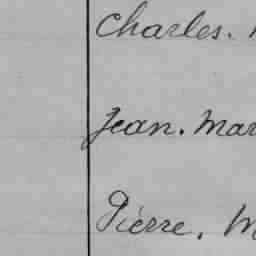 Charles.
Jean. Mar
Pierre. M